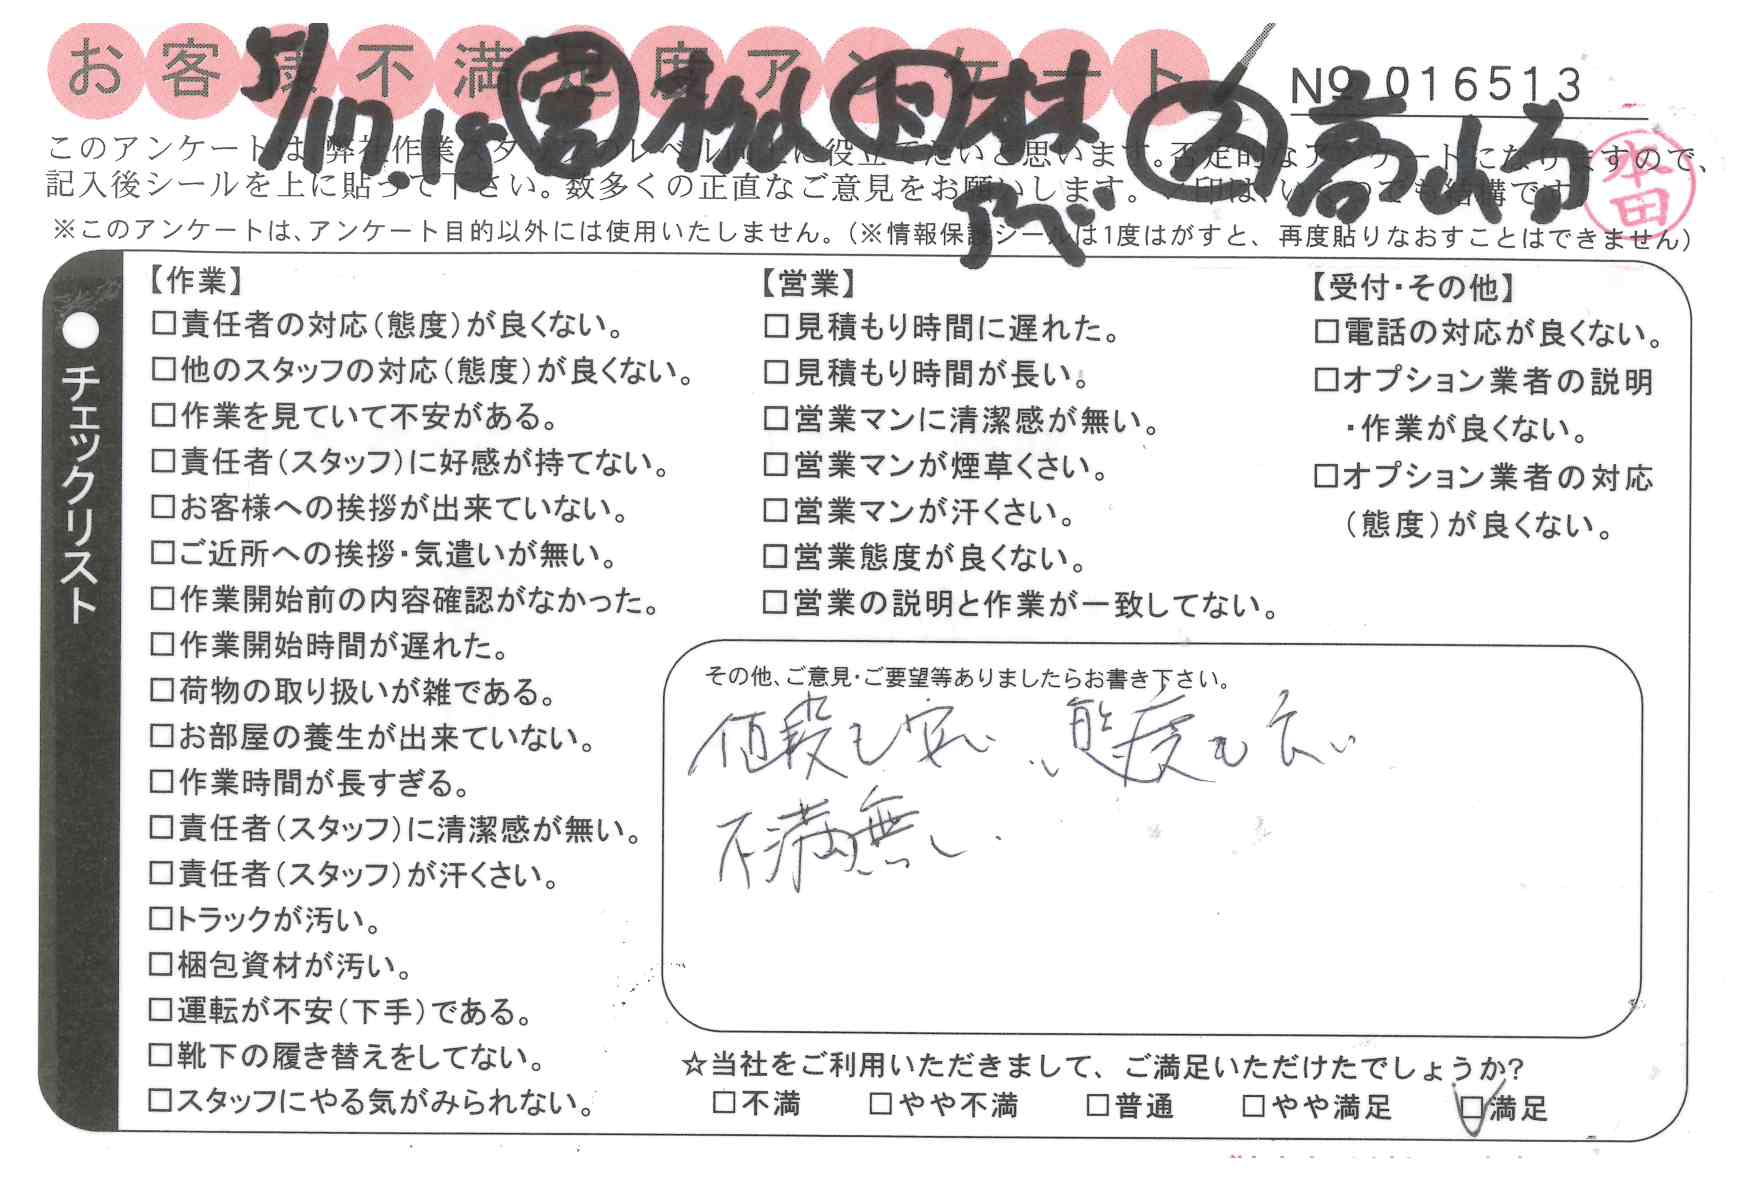 お客様不満足度アンケート
5/17.18
No 016513
林
高山
アベ
このアンケートは、弊社作業スタッフのレベル向上に役立てたいと思います。否定的なアンケートになりますので、
記入後シールを上に貼って下さい。数多くの正直なご意見をお願いします。✓印は、いくつでも結構です。
水田
※このアンケートは、アンケート目的以外には使用いたしません。(※情報保護シールは1度はがすと、再度貼りなおすことはできません)
チェックリスト
【作業】
□責任者の対応(態度)が良くない。
□他のスタッフの対応(態度)が良くない。
□作業を見ていて不安がある。
□責任者(スタッフ)に好感が持てない。
□お客様への挨拶が出来ていない。
□ご近所への挨拶・気遣いが無い。
□作業開始前の内容確認がなかった。
□作業開始時間が遅れた。
□荷物の取り扱いが雑である。
□お部屋の養生が出来ていない。
□作業時間が長すぎる。
□責任者(スタッフ)に清潔感が無い。
□責任者(スタッフ)が汗くさい。
□トラックが汚い。
□梱包資材が汚い。
□運転が不安(下手)である。
□靴下の履き替えをしてない。
□スタッフにやる気がみられない。
【営業】
□見積もり時間に遅れた。
□見積もり時間が長い。
□営業マンに清潔感が無い。
□営業マンが煙草くさい。
□営業マンが汗くさい。
□営業態度が良くない。
□営業の説明と作業が一致してない。
【受付・その他】
□電話の対応が良くない。
□オプション業者の説明
・作業が良くない。
□オプション業者の対応
(態度)が良くない。
その他、ご意見・ご要望等ありましたらお書き下さい。
値段も安い、態度も良い
不満無し.
☆当社をご利用いただきまして、ご満足いただけたでしょうか?
□不満 □やや不満 □普通 □やや満足 ☑満足